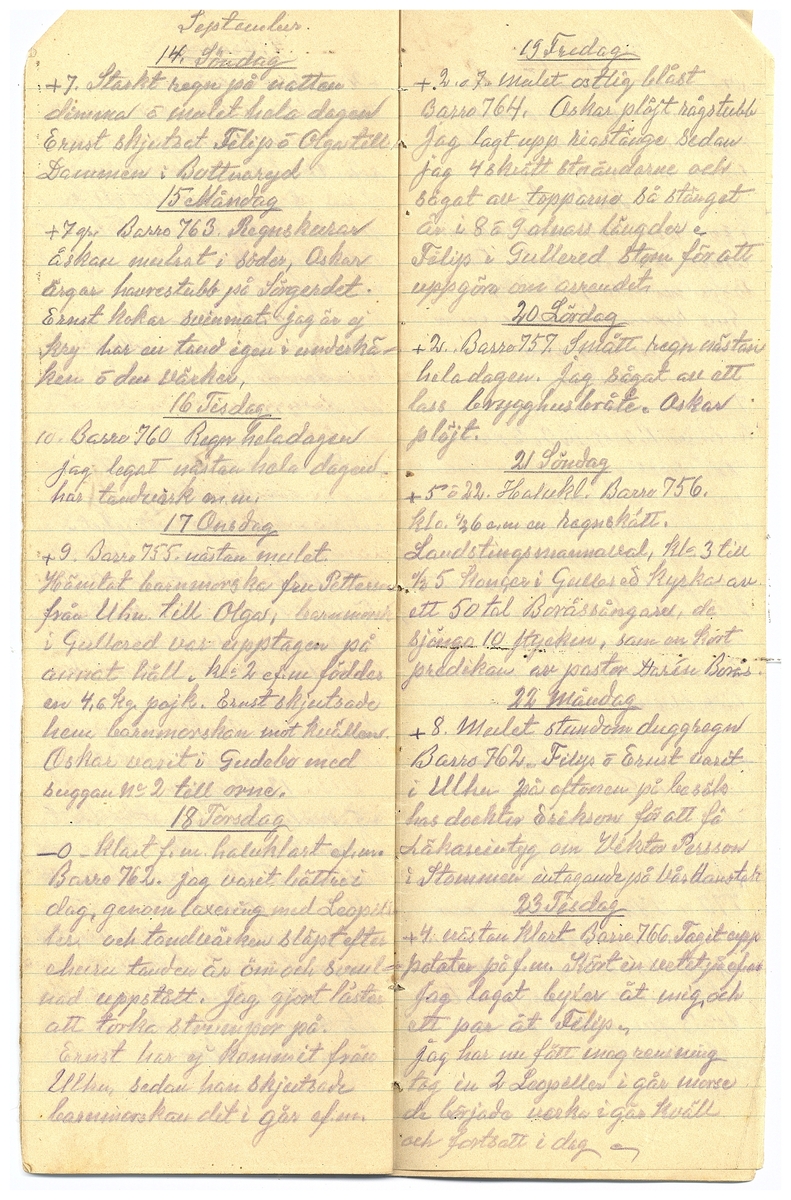 September.
14. Söndag
+7. Starkt regn på natten
dimma o mulet hela dagen
Ernst skjutsat Felip o Olga till
Dammen i Bottnaryd
15 Måndag
+7 gr. Barro 763. Regnskurar
åskan mulrat i söder, Oskar
ärgar havrestubb på Sörgerdet.
Ernst kokar svinmat. jag är ej
kry har en tand igen i underkä-
ken o den värker,
16 Tisdag
10. Barro 760 Regn heladagen
jag legat nästan hela dagen
har tandvärk m.m.
17 Onsdag
+9. Barro 755. nästan mulet.
Hämtat barnmorska fru Petterson
från Uhu till Olga, barnmorsk
i Gullered var upptagen på
annat håll. kl 2 ef.m föddes
en 4,6 kg. pojk. Ernst skjutsade
hem barnmorskan mot kvällen.
Oskar varit i Gudebo med
suggan No 2 till orne.
18 Torsdag
-0 - klart f.m. halvklart ef.m.
Barro 762. jag varit bättre i
dag, genom laxering med Leopil-
ler och tandvärken släpt efter
ehuru tanden är öm och svul-
nad uppstått. Jag gjort låster
att torka strumpor på.
Ernst har ej kommit från
Ulhu, sedan han skjutsade
barnmorskan dit i går ef.m.
19 Fredag.
+2. o 7. Mulet ostlig blåst
Barro 764. Oskar plöjt rågstubb
Jag lagt upp riastänge sedan
jag 4 skrätt storändarne och
sågat av topparna så stänget
är i 8 à 9 alnars längder.
Felip i Gullered Stom för att
uppgöra om arrendet.
20 Lördag
+2. Barro 757. Smått regn nästan
heladagen. Jag sågat av ett
lass brygghusbråte. Oskar
plöjt.
21 Söndag
+5 o 22. Halvkl. Barro 756.
klo. ½6 e.m en regnskätt.
Landstingsmannaval, kl 3 till
½ 5 Konger i Gullered Kyrka av
ett 50 tal Boråssångare, de
sjönga 10 stycken, sam en kort
predikan av pastor Darin Borås.
22 Måndag
+8. Mulet stundom duggregn
Barro 762. Felip o Ernst varit
i Ulhu på eftonen på besök
hos docktor Erikson för att få
Läkareintyg om Viktor Persson
i Stommen intagande på Vårdanstalt
23 Tisdag
+4. nästan klart Barro 766. Tagit upp
potater på f.m. Kört in vetet på ef.m
Jag lagat byxer åt mig och
ett par åt Felip.
Jag har nu fått magrensning
tog in 2 Leopiller i går morse
de började verka i går kväll
och fortsatt i dag